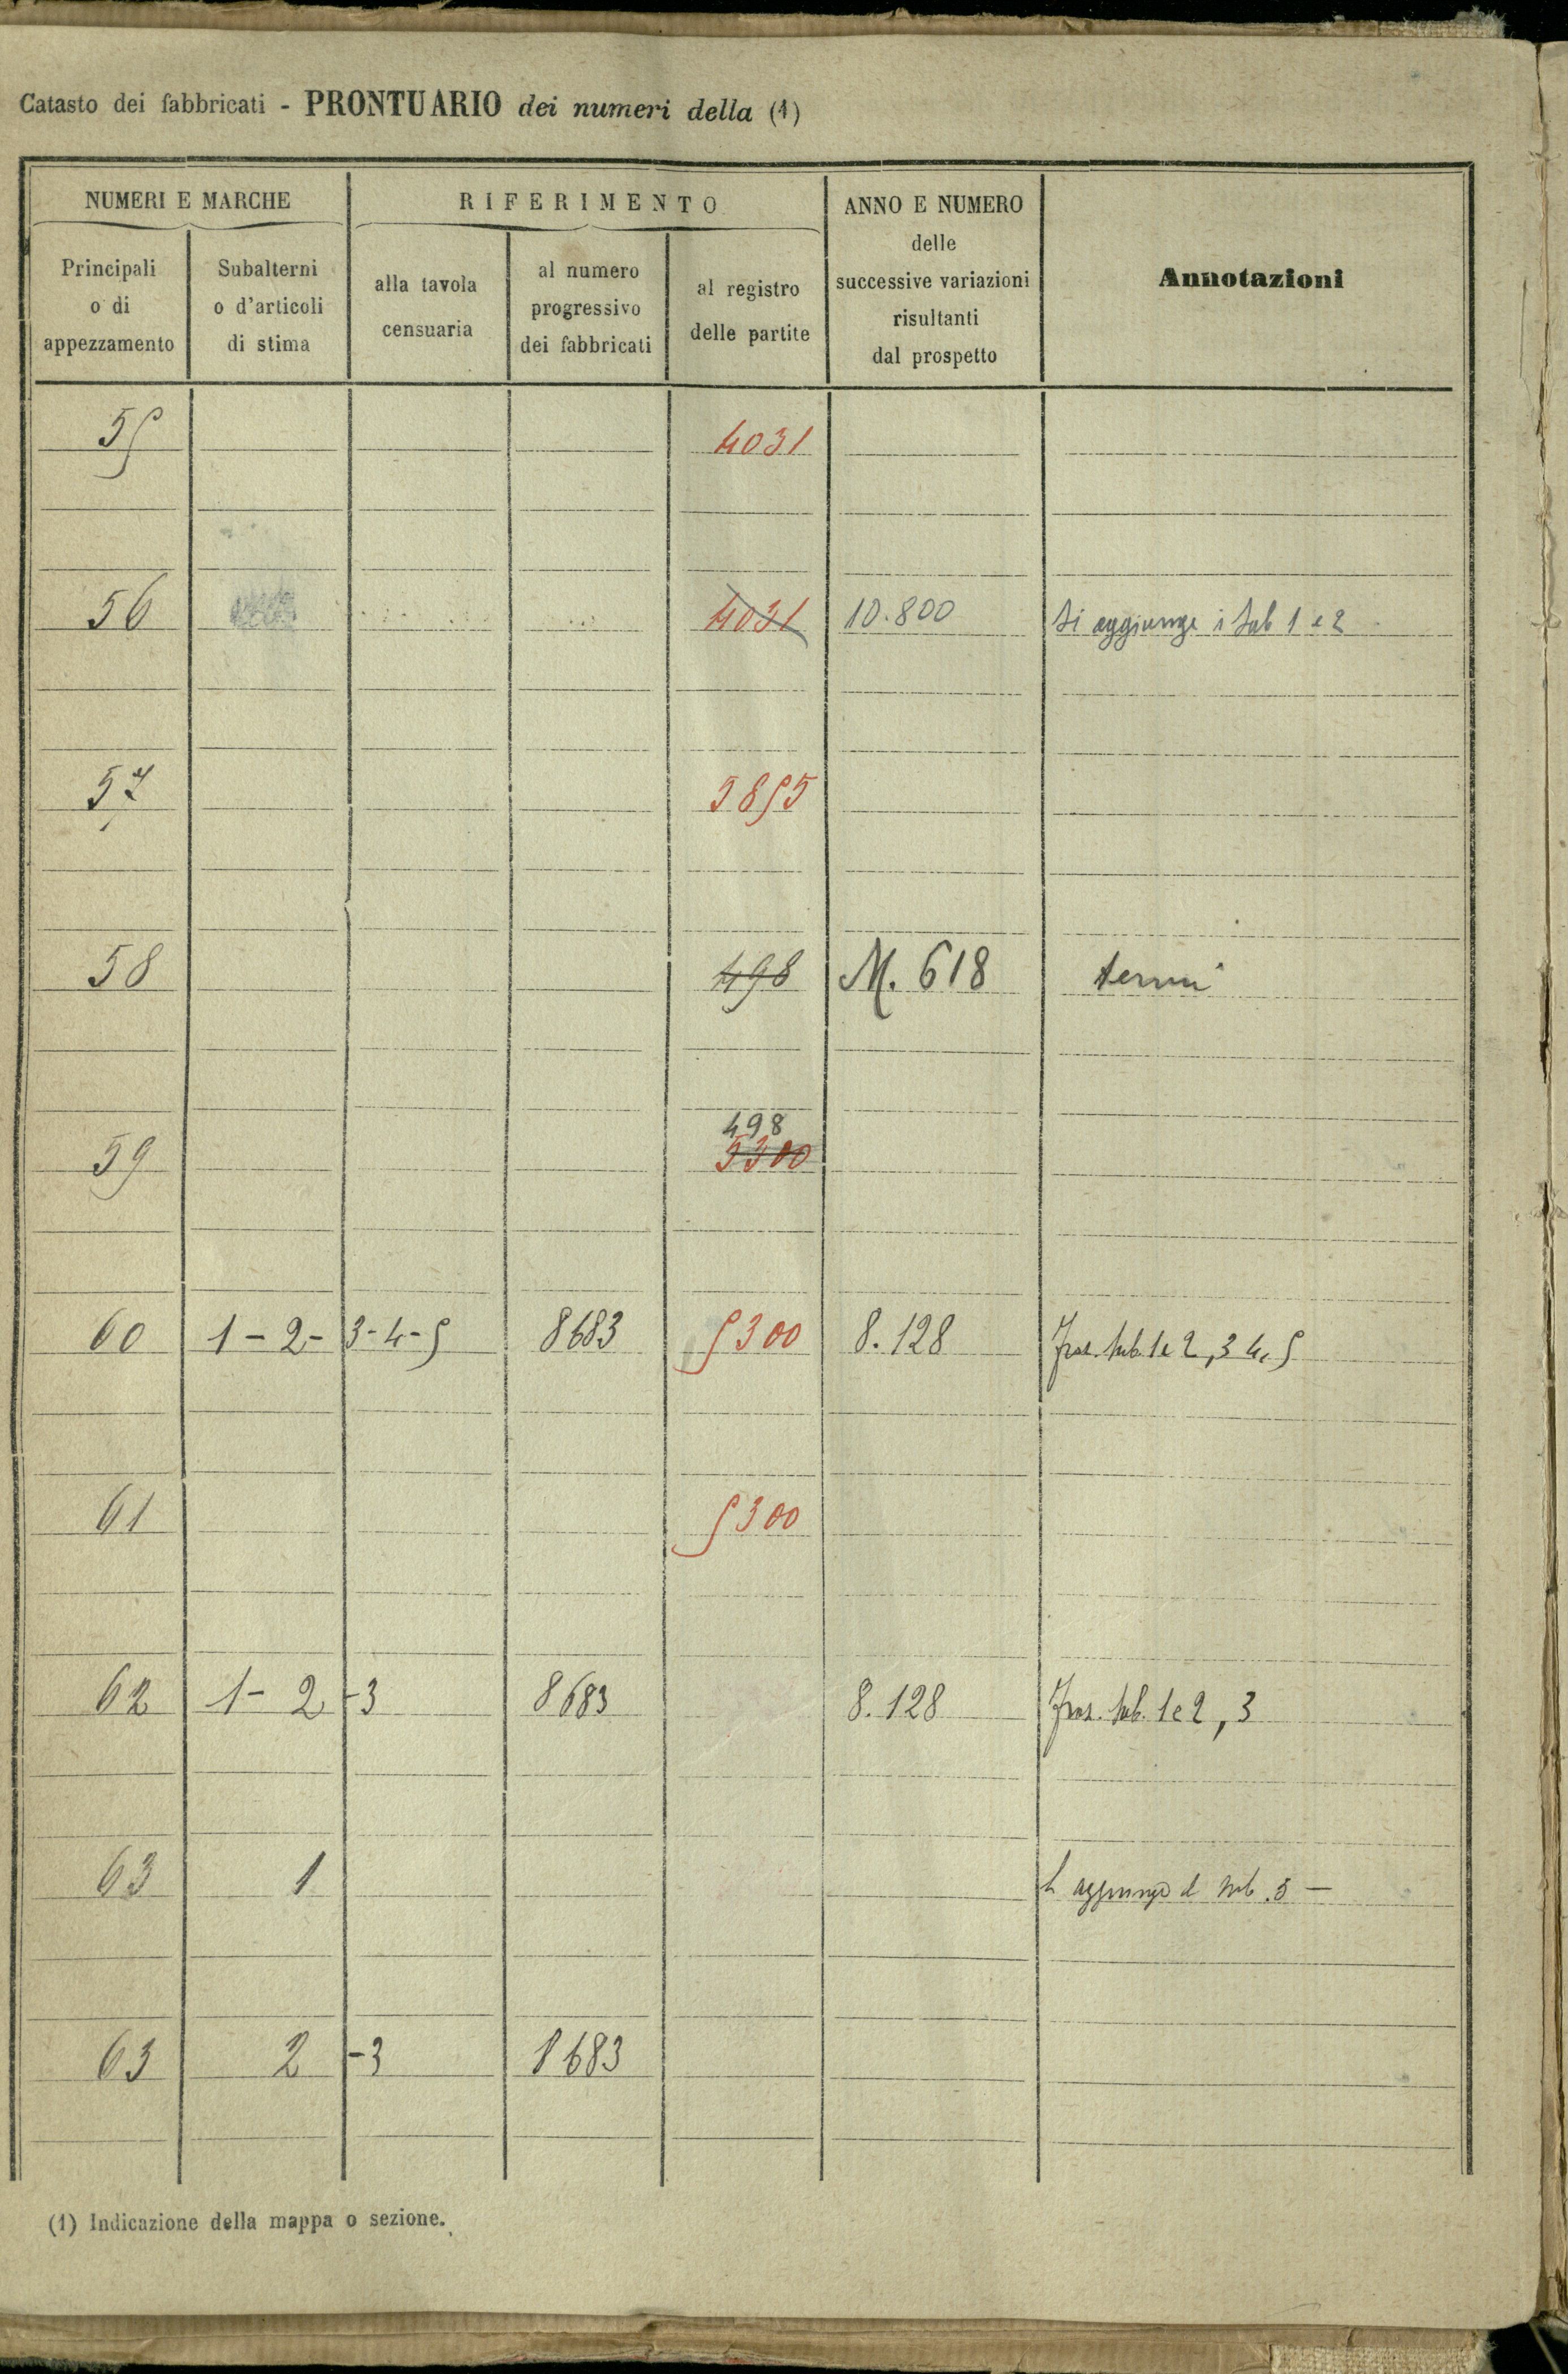 Catasto dei fabbricati - PRONTUARIO dei numeri della (1)
NUMERI E MARCHE
RIFERIMENTO
ANNO E NUMERO
delle
successive variazioni
risultanti
dal prospetto
Annotazioni
Principali
o di
appezzamento
Subalterni
o d'articoli
di stima
alla tavola
censuaria
al numero
progressivo
dei fabbricati
al registro
delle partite
55 4031
56 4031 10.800 Si aggiunge i Sub 1 e 2
57 5855
58 498 M. 618
498
59 5300
60 1-2-3-4-5 8683 5300 8.128 sub. 1e 2, 3 4, 5
61 5300
62 1-2-3 8683 8.128 sub. 1e2, 3
63 1 aggiunge sub. 3 -
63 2-3 8683
(1) Indicazione della mappa o sezione.